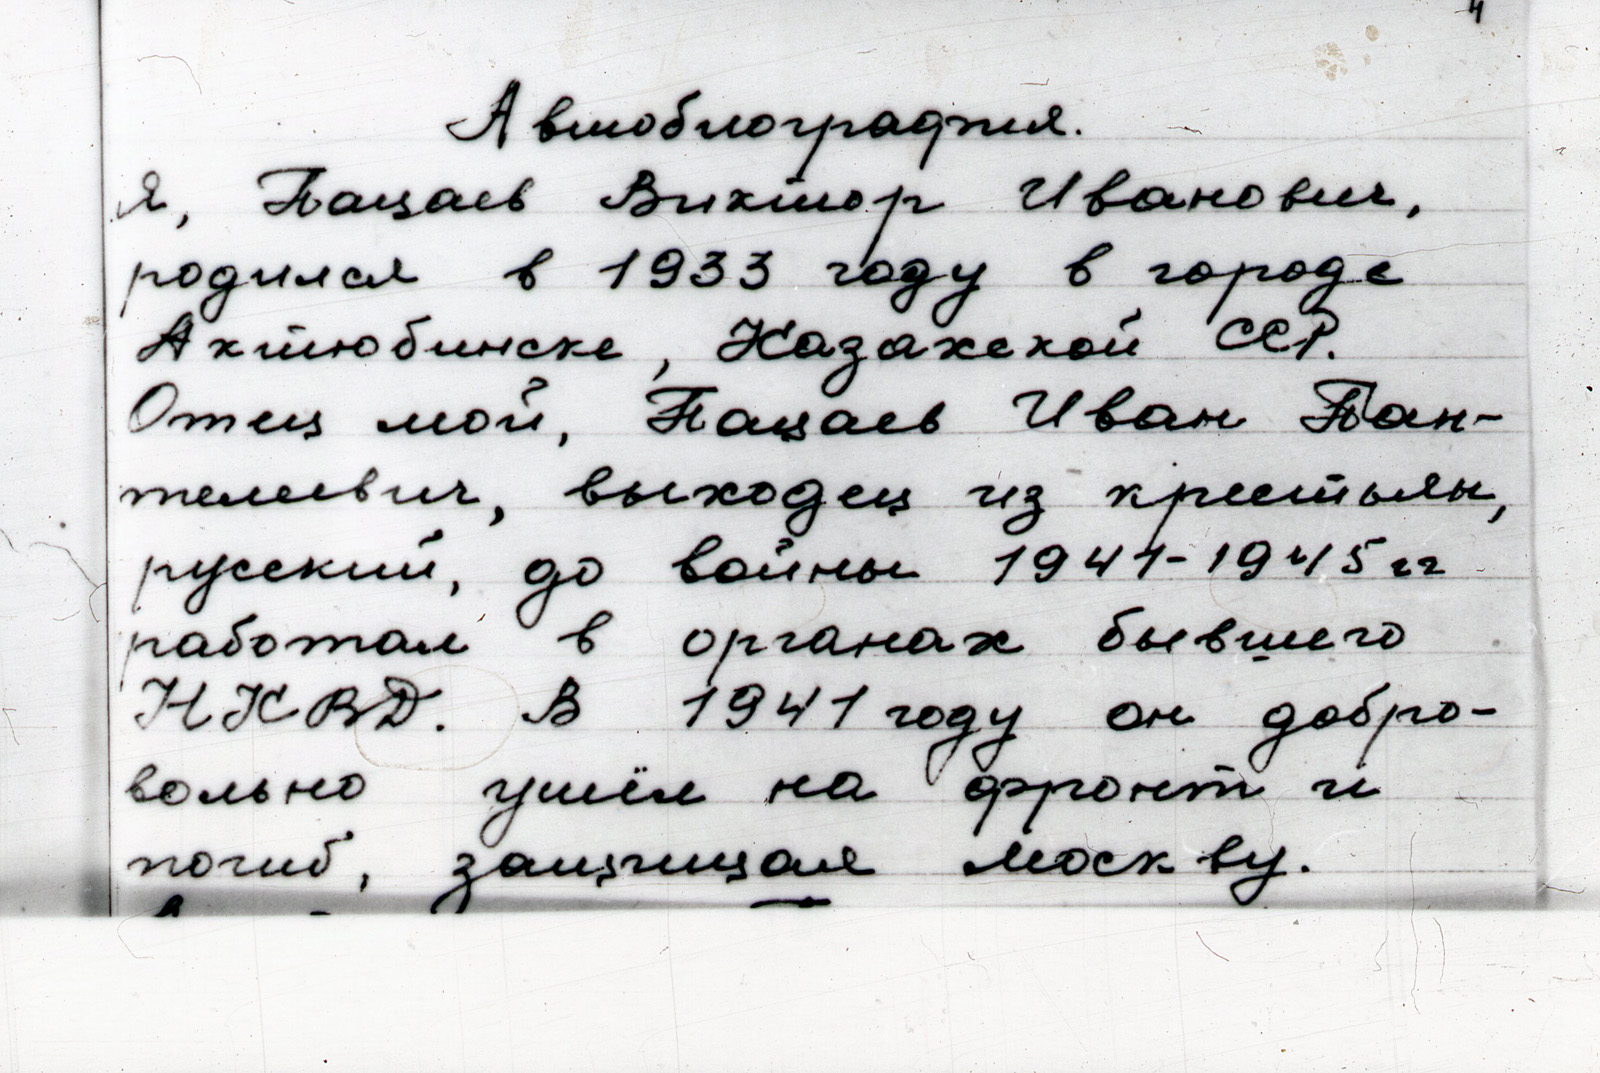 4
Автобиография.
Я, Пацаев Виктор Иванович,
родился в 1933 году в городе
Актюбинске, Казахской ССР.
Отец мой, Пацаев Иван Пан-
телеевич, выходец из крестьян,
русский, до войны 1941-1945 гг
работал в органах бывшего
НКВД. В 1941 году он добро-
вольно ушёл на фронт и
погиб, защищая Москву.